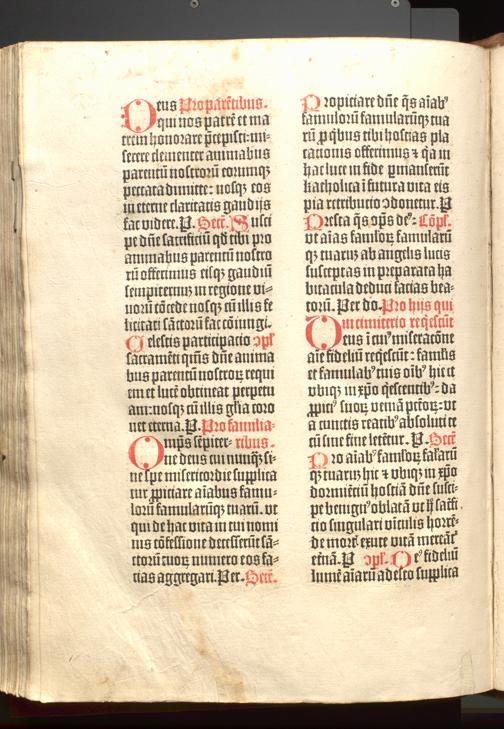 Deus Pro parētibus.
qui nos patrē et ma
trem honorare p̄cepisti: mi⸗
serere clementer animabus
parentū nostrorū eorumqꝫ
peccata dimitte: nosqꝫ eos
in eterne claritatis gaudijs
fac videre. P. Secr̄. Susci
pe dn̄e sacrificiū qd̄ tibi pro
animabus parentū nostro
rū offerimus eisqꝫ gaudiū
sempiternū in regione vi⸗
uorū cōcede nosqꝫ cū illis fe
licitati sāctorū fac cōiungi.
Celestis participatio ꝯpl̄
sacramēti qs̄ dn̄e anima
bus parentū nostroꝝ requi
em et lucē obtineat perpetu
am: nosqꝫ cū illis gr̄a coro
net eterna. P. Pro familia⸗
Omp̄s sēpiter⸗ ribus.
ne deus cui nunqꝫ̄ si⸗
ne spe misericordie supplica
tur ꝓpiciare aīabus famu⸗
lorū famularūqꝫ tuarū. vt
qui de hac vita in tui nomi
nis cōfessione decesserūt sā⸗
ctorū tuoꝝ numero eos fa⸗
cias aggregari. Per. Secr̄.
Propiciare dn̄e qs̄ aīabꝰ
famulorū famularūqꝫ tua
rū ꝓ qͥbus tibi hostias pla
cationis offerimus ⁊ qͥa in
hac luce in fide ꝑmanserūt
katholica ī futura vita eis
pia retributio ꝯdonetur. P
Presta qs̄ op̄s deꝰ: Cōpl̄.
vt aīas famloꝝ famularū
qꝫ tuaꝝ ab angelis lucis
susceptas in preparata ha
bitacula deduci facias bea⸗
torū. Per do. Pro hijs qui
in cimiterio reqͥescūt
Deus ī cuiꝰ miseracōne
aīe fideliū reqͥescūt: famlis
et famulabꝰ tuis oīb̄ hic et
vbiqꝫ in xp̄o qͥescentibꝰ: da
ꝓpitꝰ suoꝝ veniā pctōꝝ: vt
a cunctis reatibꝰ absoluti te
cū sine fine letētur. P. Secr̄
Pro aīabꝰ famloꝝ famlarū
qꝫ tuarū hic ⁊ vbiqꝫ in xp̄o
dormiētiū hostiā dn̄e susci⸗
pe benigꝰ oblatā vt h̄ sacri
ficio singulari vīculis horrē⸗
de mortꝭ exute vitā mereāt̄
etnā. P ꝯpl̄. Deꝰ fideliū
lumē aīarū adesto supplica